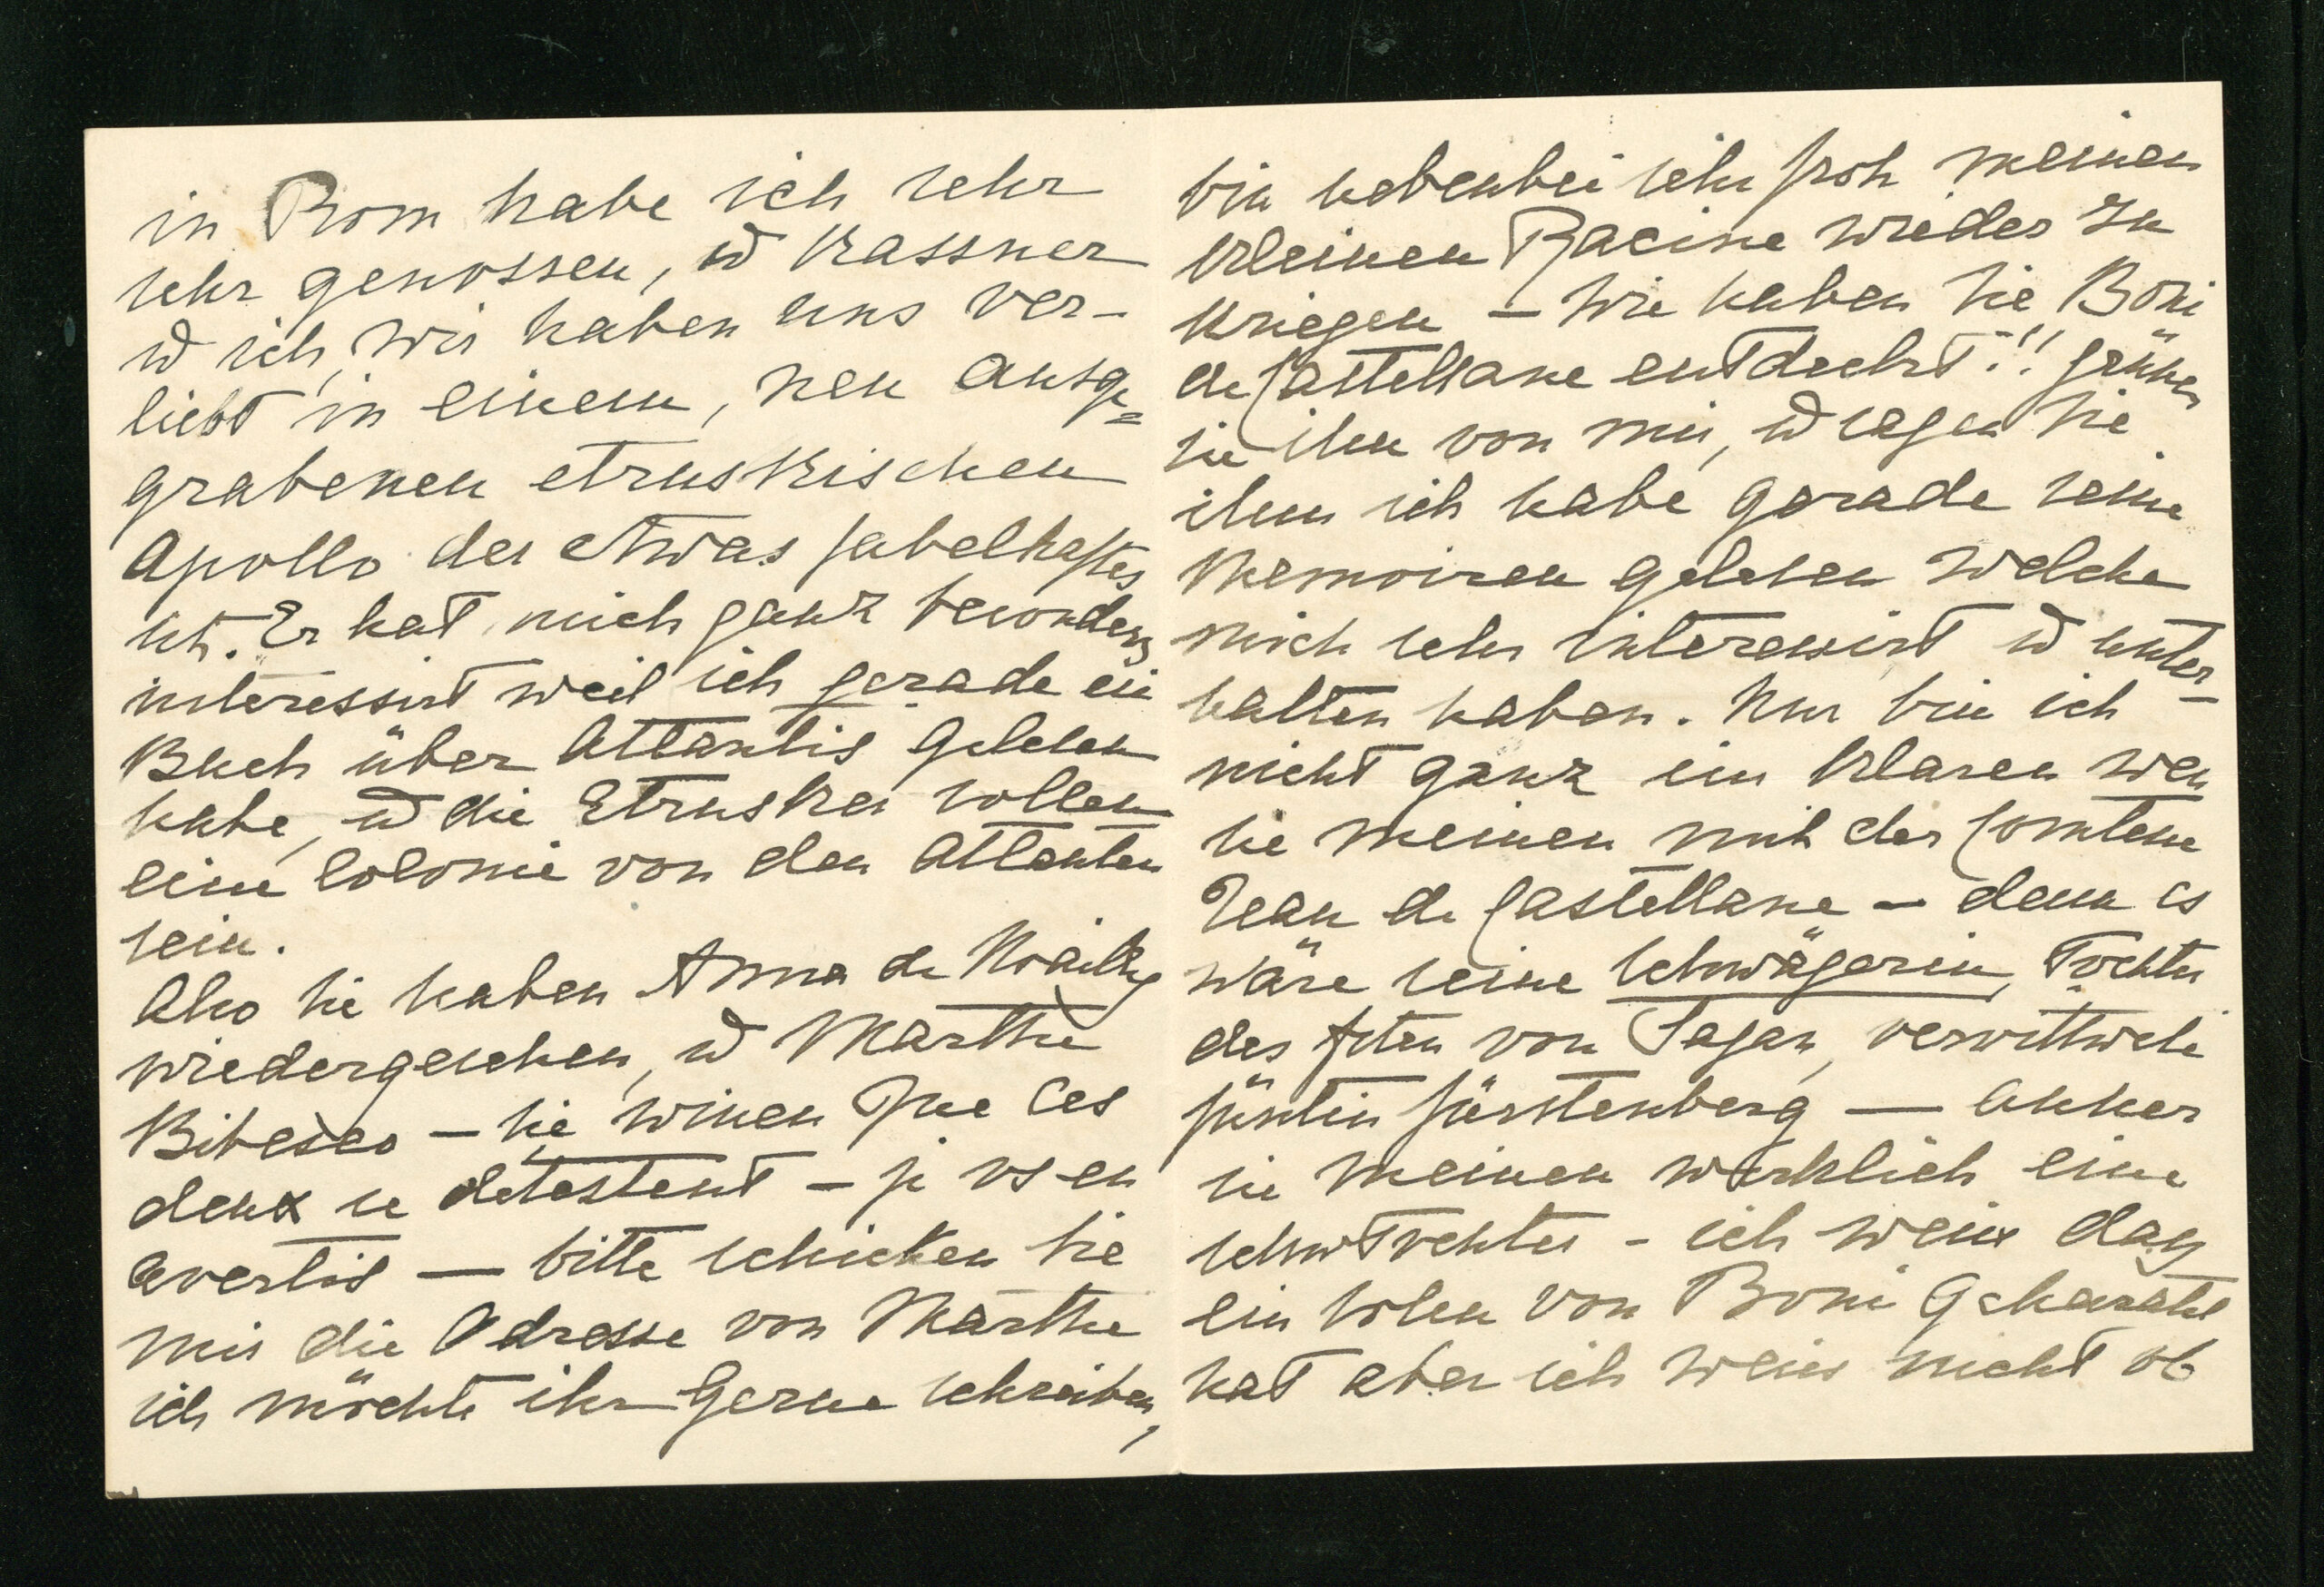 in Rom habe ich sehr
sehr genossen, u Kassner
u ich, wir haben uns ver-
liebt in einem, neu ausge=
grabenen etruskischen
Apollo der etwas fabelhaftes
ist. Er hat mich ganz besonders
interessirt weil ich gerade ein
Buch über Atlantis gelesen
habe, u die Etrusker sollen
eine Colonie von den Atlanten
sein.
Also Sie haben Anna de Noailles
wiedergesehen, u Marthe
Bibesco – Sie wissen que ces
deux se détestent – je vs en
avertis — bitte schicken Sie
mir die Adresse von Marthe
ich möchte ihr gerne schreiben,
bin nebenbei sehr froh meinen
kleinen Racine wieder zu
kriegen – Wie haben Sie Boni
de Castellane entdeckt!! Grüssen
Sie ihn von mir, u sagen Sie
ihm ich habe gerade seine
Memoiren gelesen welche
mich sehr interessirt u unter-
halten haben. Nur bin ich
nicht ganz im Klaren wen
Sie meinen mit der Comtesse
Jean de Castellane – denn es
wäre seine Schwägerin, Tochter
des Fsten von Sagan, verwittwete
Fürstin Fürstenberg — ausser
Sie meinen wirklich eine
SchwTochter – ich weiss dass
ein Sohn von Boni geheiratet
hat aber ich weiss nicht ob